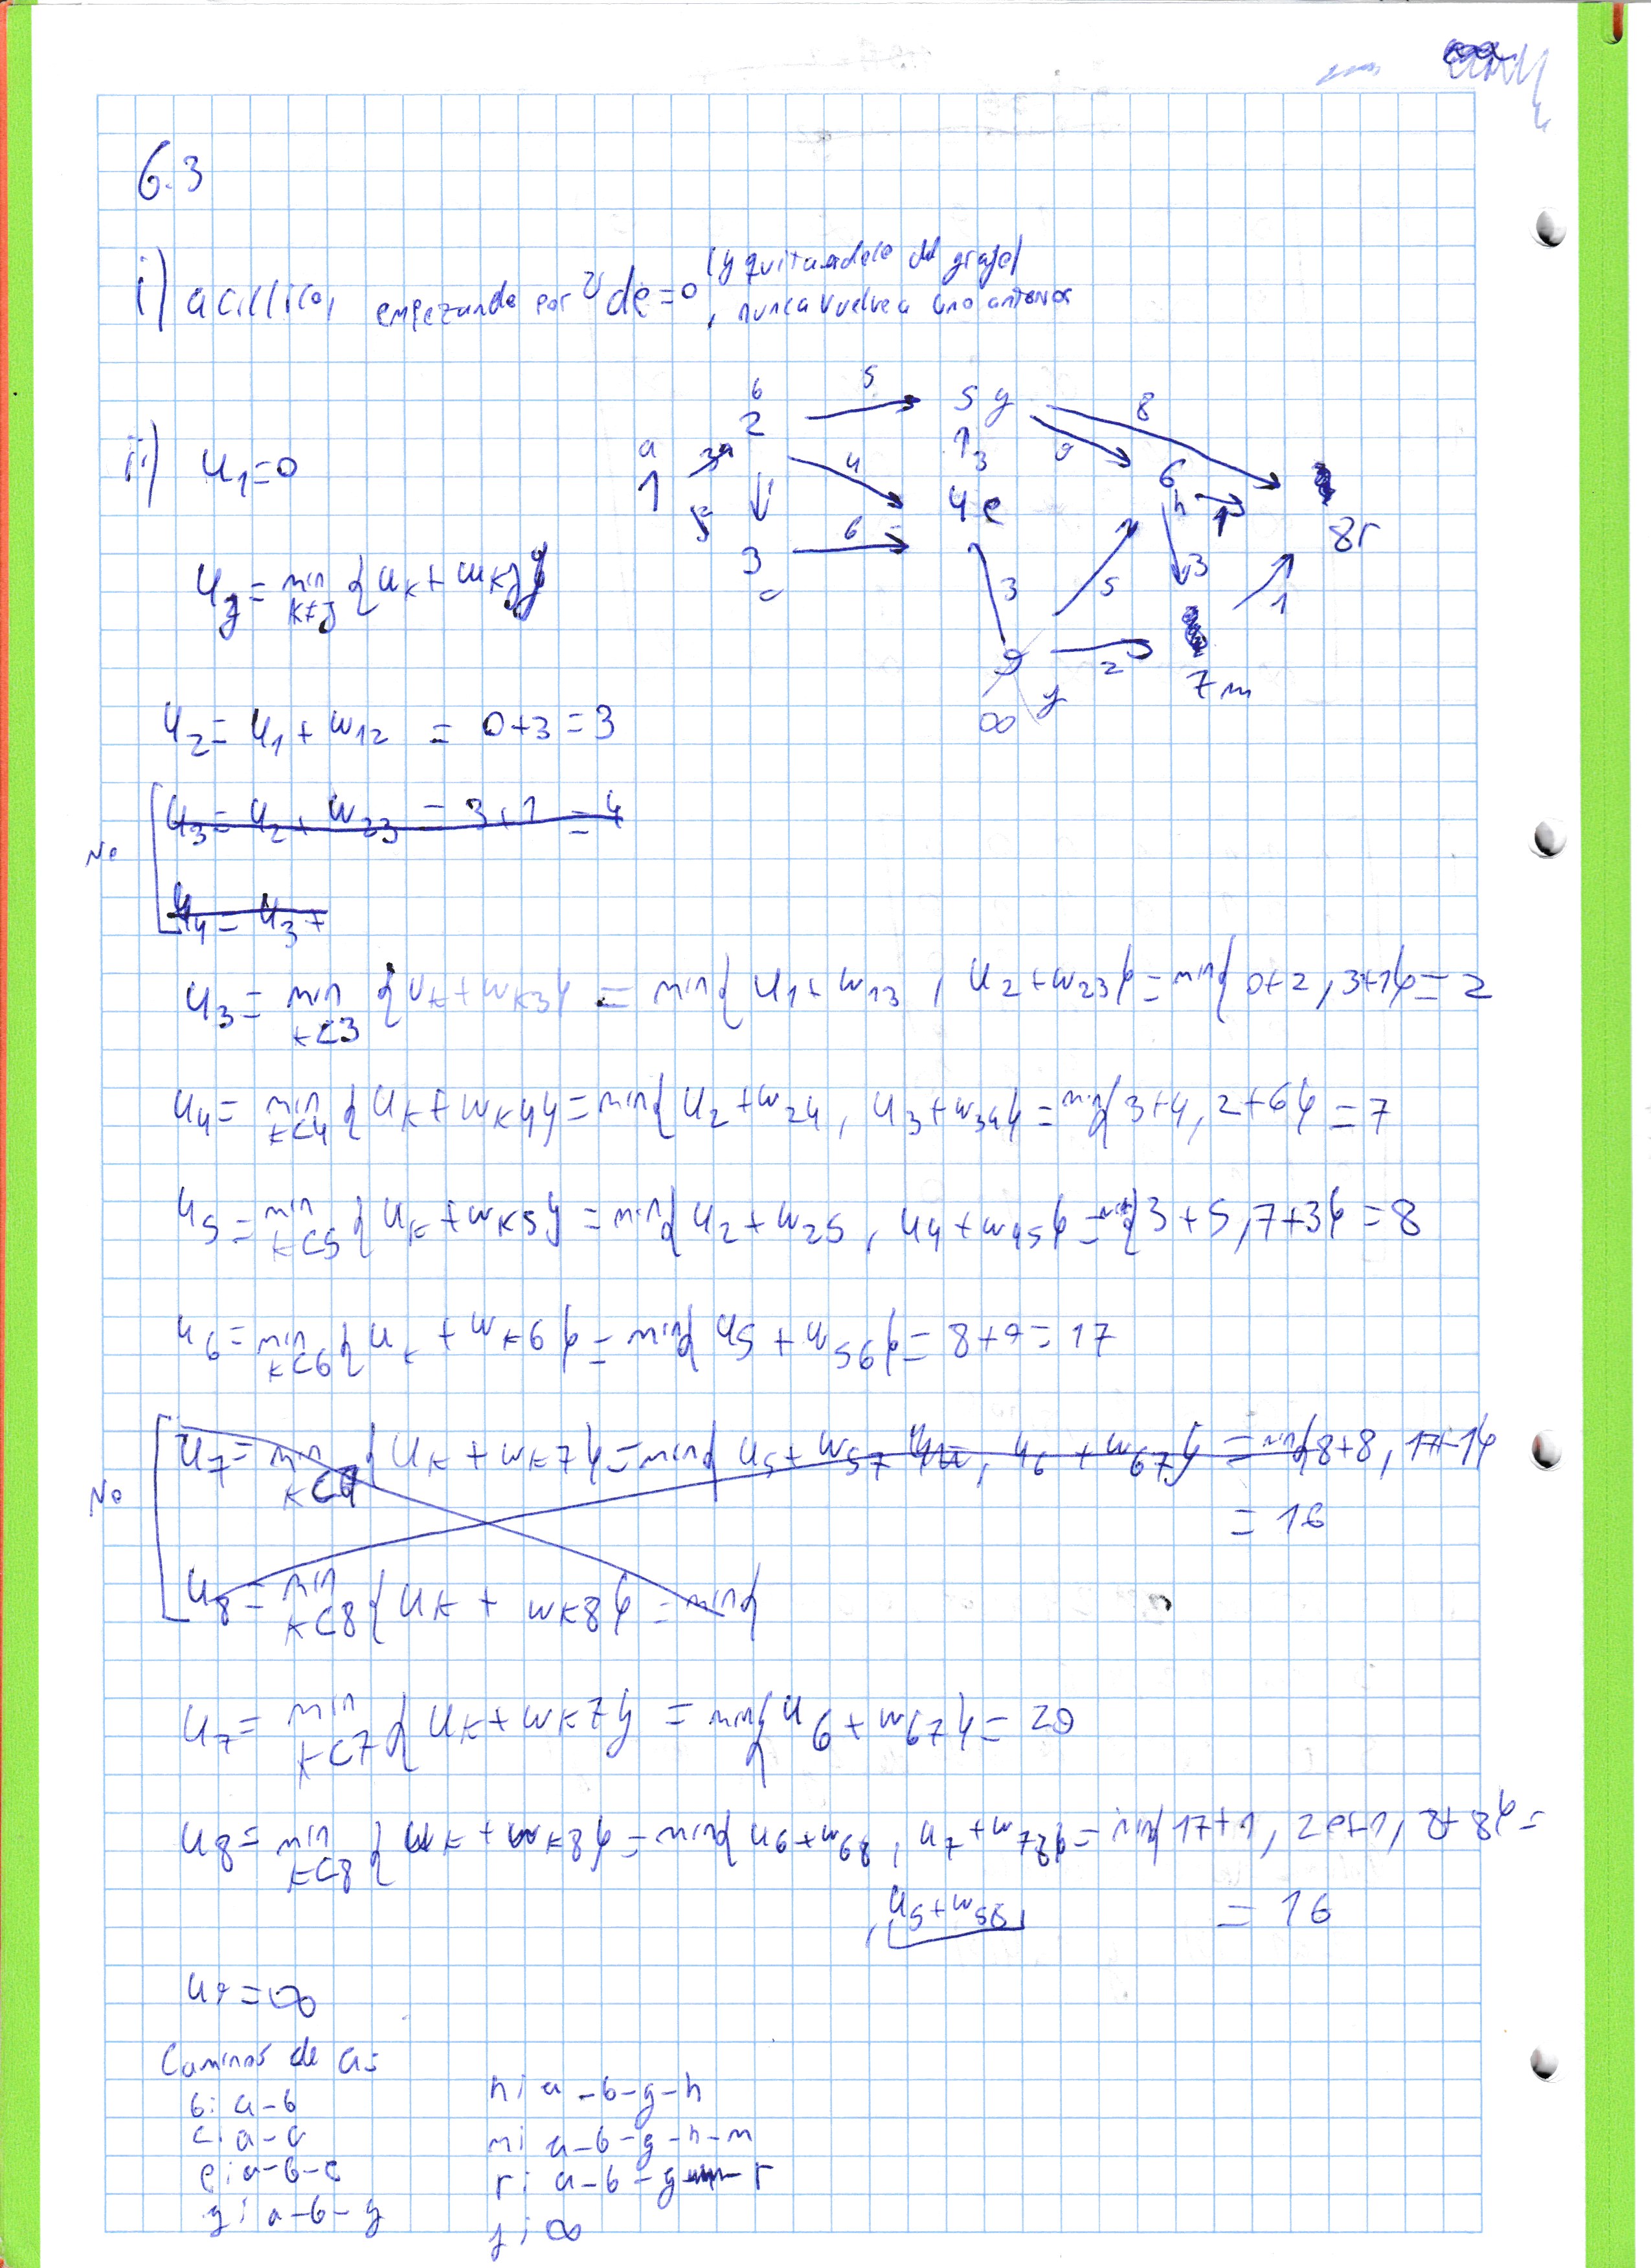 6.3
i) acíclico, empezando por v de=0 (y quitandolo del grafo), nunca vuelve a uno anterior
ii) u1=0
a 1
b 2
3 c
4 e
5 g
6 h
7 m
8 r
9 j
∞
5
4
6
3
9
8
1
3
3
5
2
1
uj = min k≠j {uk + wkj}
u2 = u1 + w12 = 0+3 = 3
No
u3 = u2 + w23 = 3+1 = 4
u4 = u3 +
u3 = min k<3 {uk + wk3} = min{u1 + w13, u2 + w23} = min{0+2, 3+1} = 2
u4 = min k<4 {uk + wk4} = min{u2 + w24, u3 + w34} = min{3+4, 2+6} = 7
u5 = min k<5 {uk + wk5} = min{u2 + w25, u4 + w45} = min{3+5, 7+3} = 8
u6 = min k<6 {uk + wk6} = min{u5 + w56} = 8+9 = 17
No
u7 = min k<7 {uk + wk7} = min{u5 + w57, u6 + w67} = min{8+8, 17+1}
= 16
u8 = min k<8 {uk + wk8} = min{
u7 = min k<7 {uk + wk7} = min{u6 + w67} = 20
u8 = min k<8 {uk + wk8} = min{u6 + w68, u7 + w78} = min{17+1, 20+1, 8+8} =
, u5 + w58
= 16
u9 = ∞
Caminos de a:
b: a-b
c: a-c
e: a-b-e
g: a-b-g
h: a-b-g-h
m: a-b-g-h-m
r: a-b-g-r
j: ∞